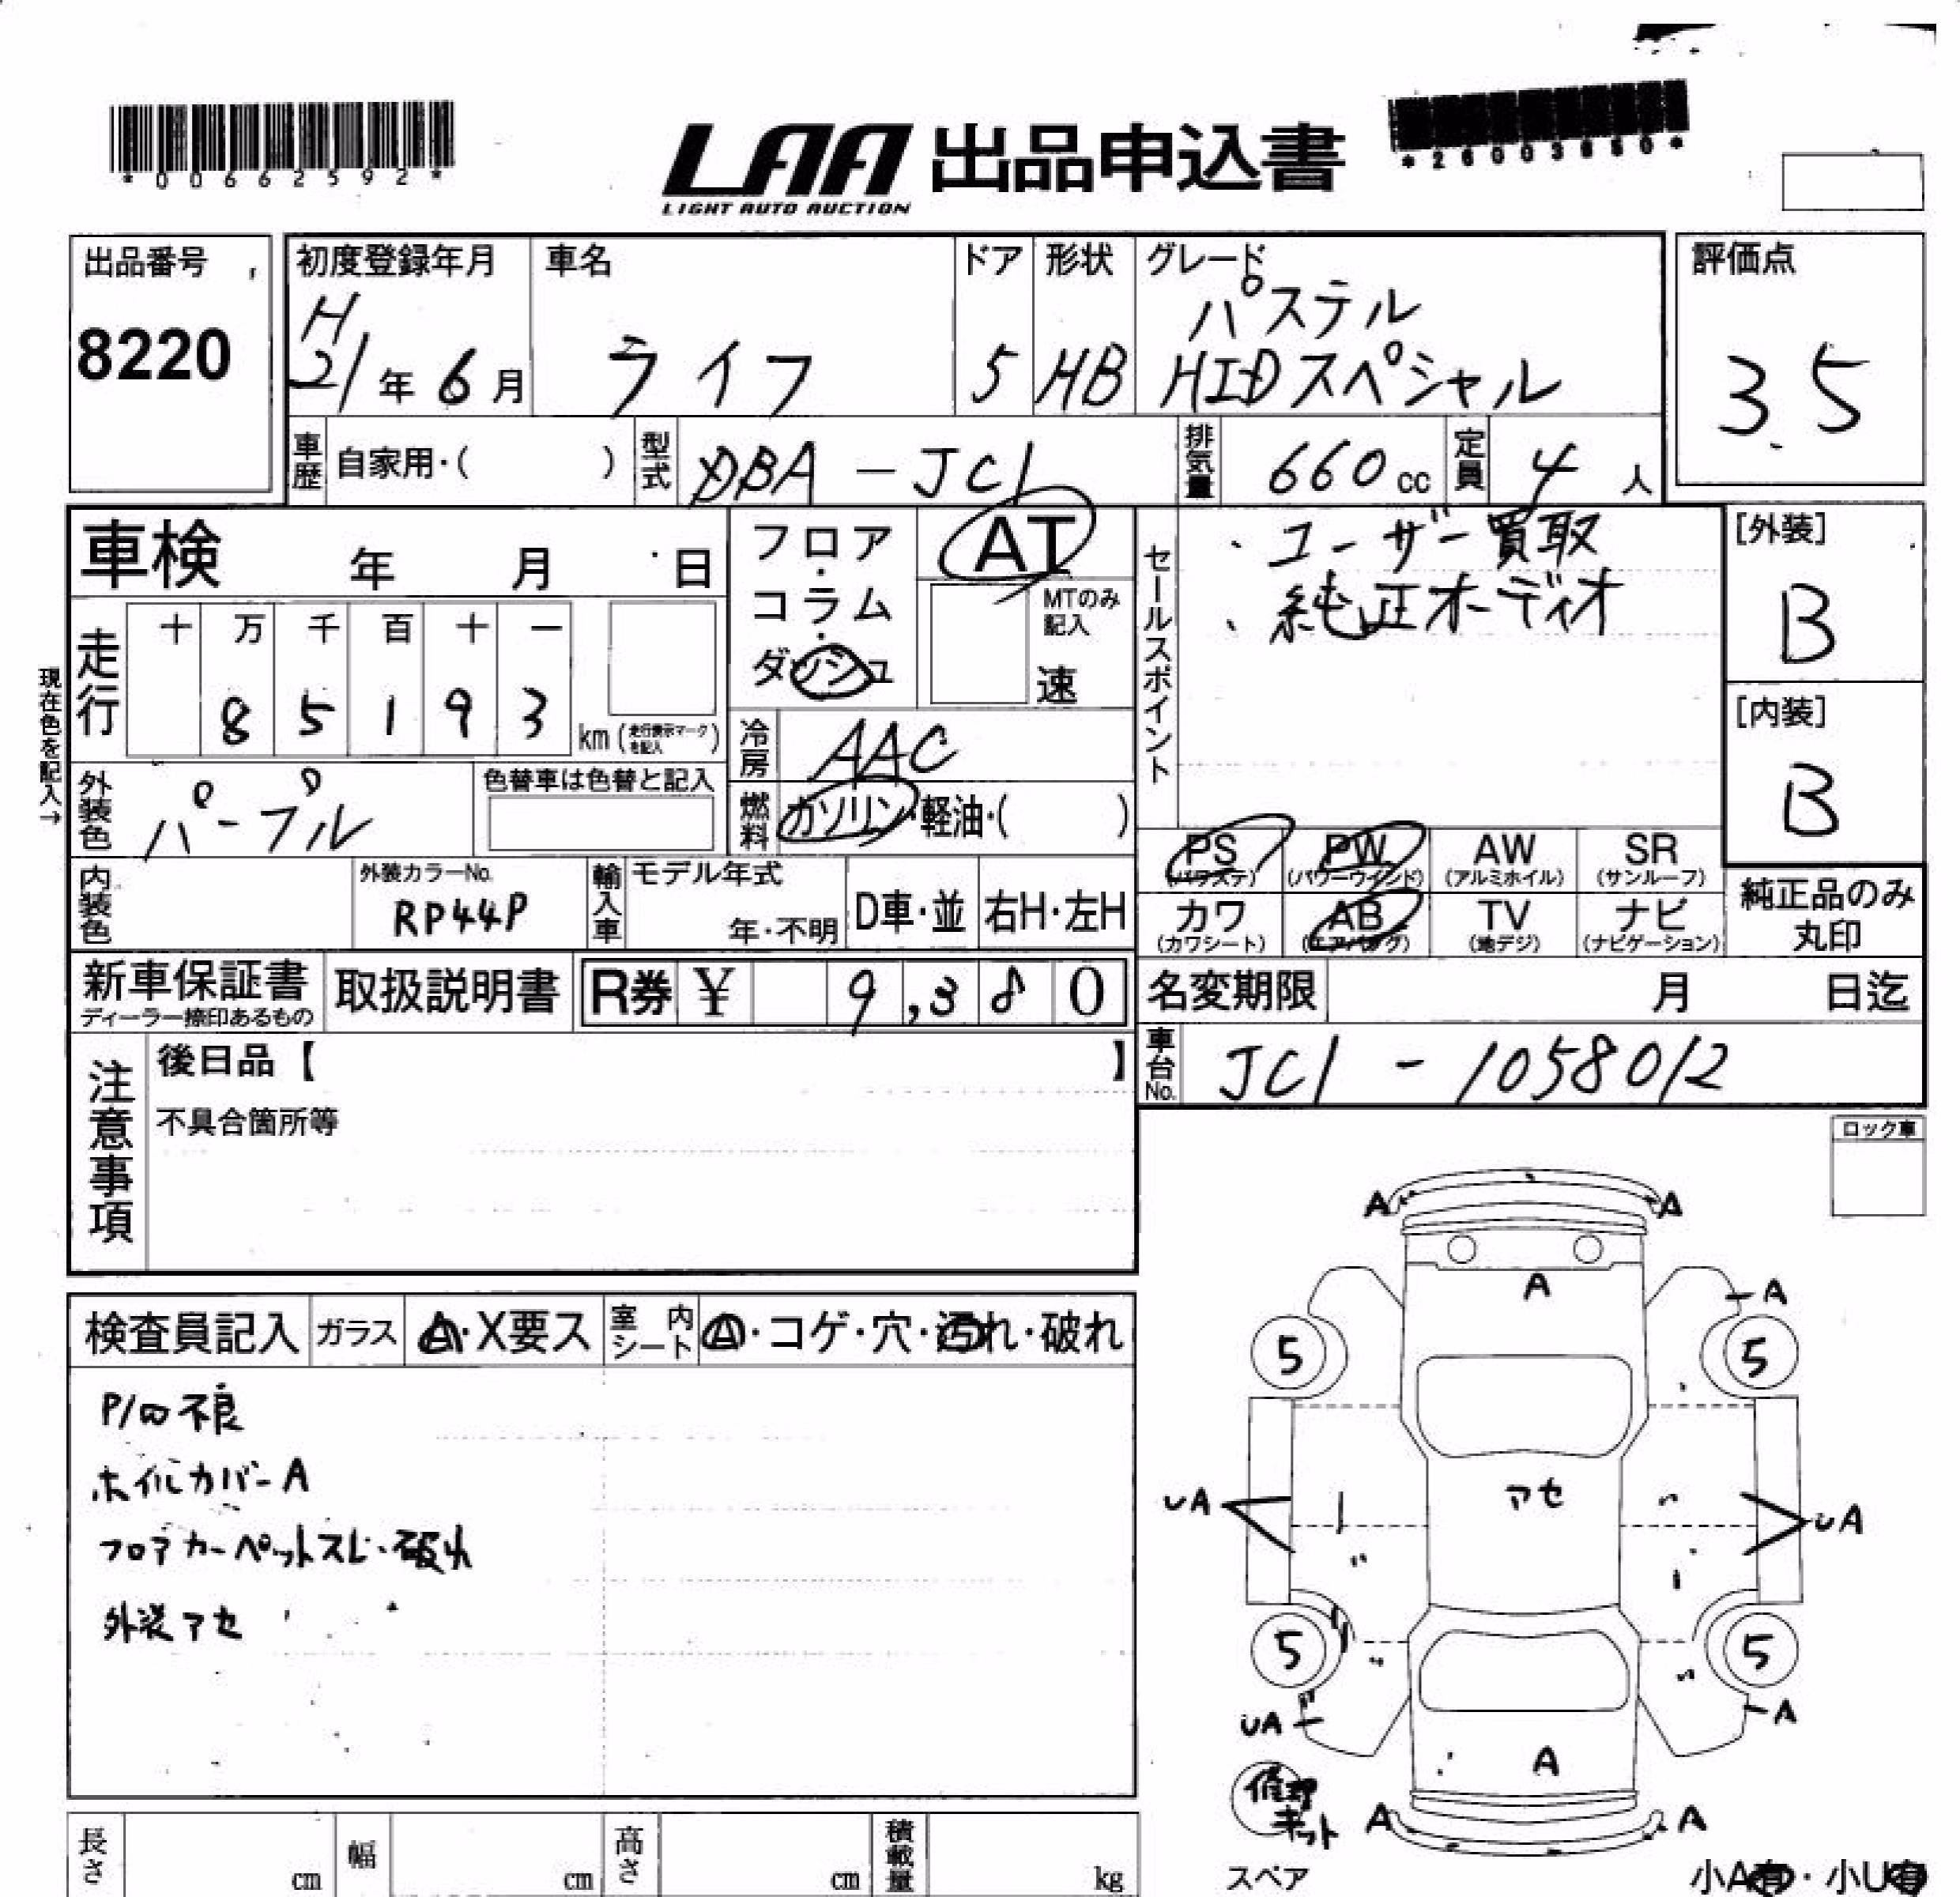 *00662592*
LAA 出品申込書
LIGHT AUTO AUCTION
*26003650*
出品番号
8220
初度登録年月
H
21年 6月
車名
ライフ
ドア
5
形状
HB
グレード
パステル
HIDスペシャル
評価点
3.5
車歴
自家用・( )
型式
DBA-JC1
排気量
660cc
定員
4人
車検 年 月 日
フロア・コラム・ダッシュ
AT
MTのみ記入
速
セールスポイント
・ユーザー買取
・純正オーディオ
[外装]
B
[内装]
B
現在色を記入→
走行
十 万 千 百 十 一
8 5 1 9 3
km(走行表示マークを記入)
冷房
AAC
燃料
ガソリン・軽油・( )
外装色
パープル
色替車は色替と記入
PS
(パワステ)
PW
(パワーウインド)
AW
(アルミホイル)
SR
(サンルーフ)
カワ
(カワシート)
AB
(エアバッグ)
TV
(地デジ)
ナビ
(ナビゲーション)
純正品のみ
丸印
内装色
外装カラーNo.
RP44P
輸入車
モデル年式
年・不明
D車・並
右H・左H
新車保証書
ディーラー捺印あるもの
取扱説明書
R券 ¥ 9,380
名変期限 月 日迄
車台No.
JC1-1058012
注意事項
後日品【 】
不具合箇所等
ロック車
検査員記入
ガラス
A・X要ス
室内シート
A・コゲ・穴・汚れ・破れ
P/W不良
ホイルカバーA
フロアカーペットスレ・破れ
外装アセ
A A
A
A
5 5
アセ
UA UA
5 5
UA A
A
修理キット
A A
スペア
小A有・小U有
長さ cm
幅 cm
高さ cm
積載量 kg